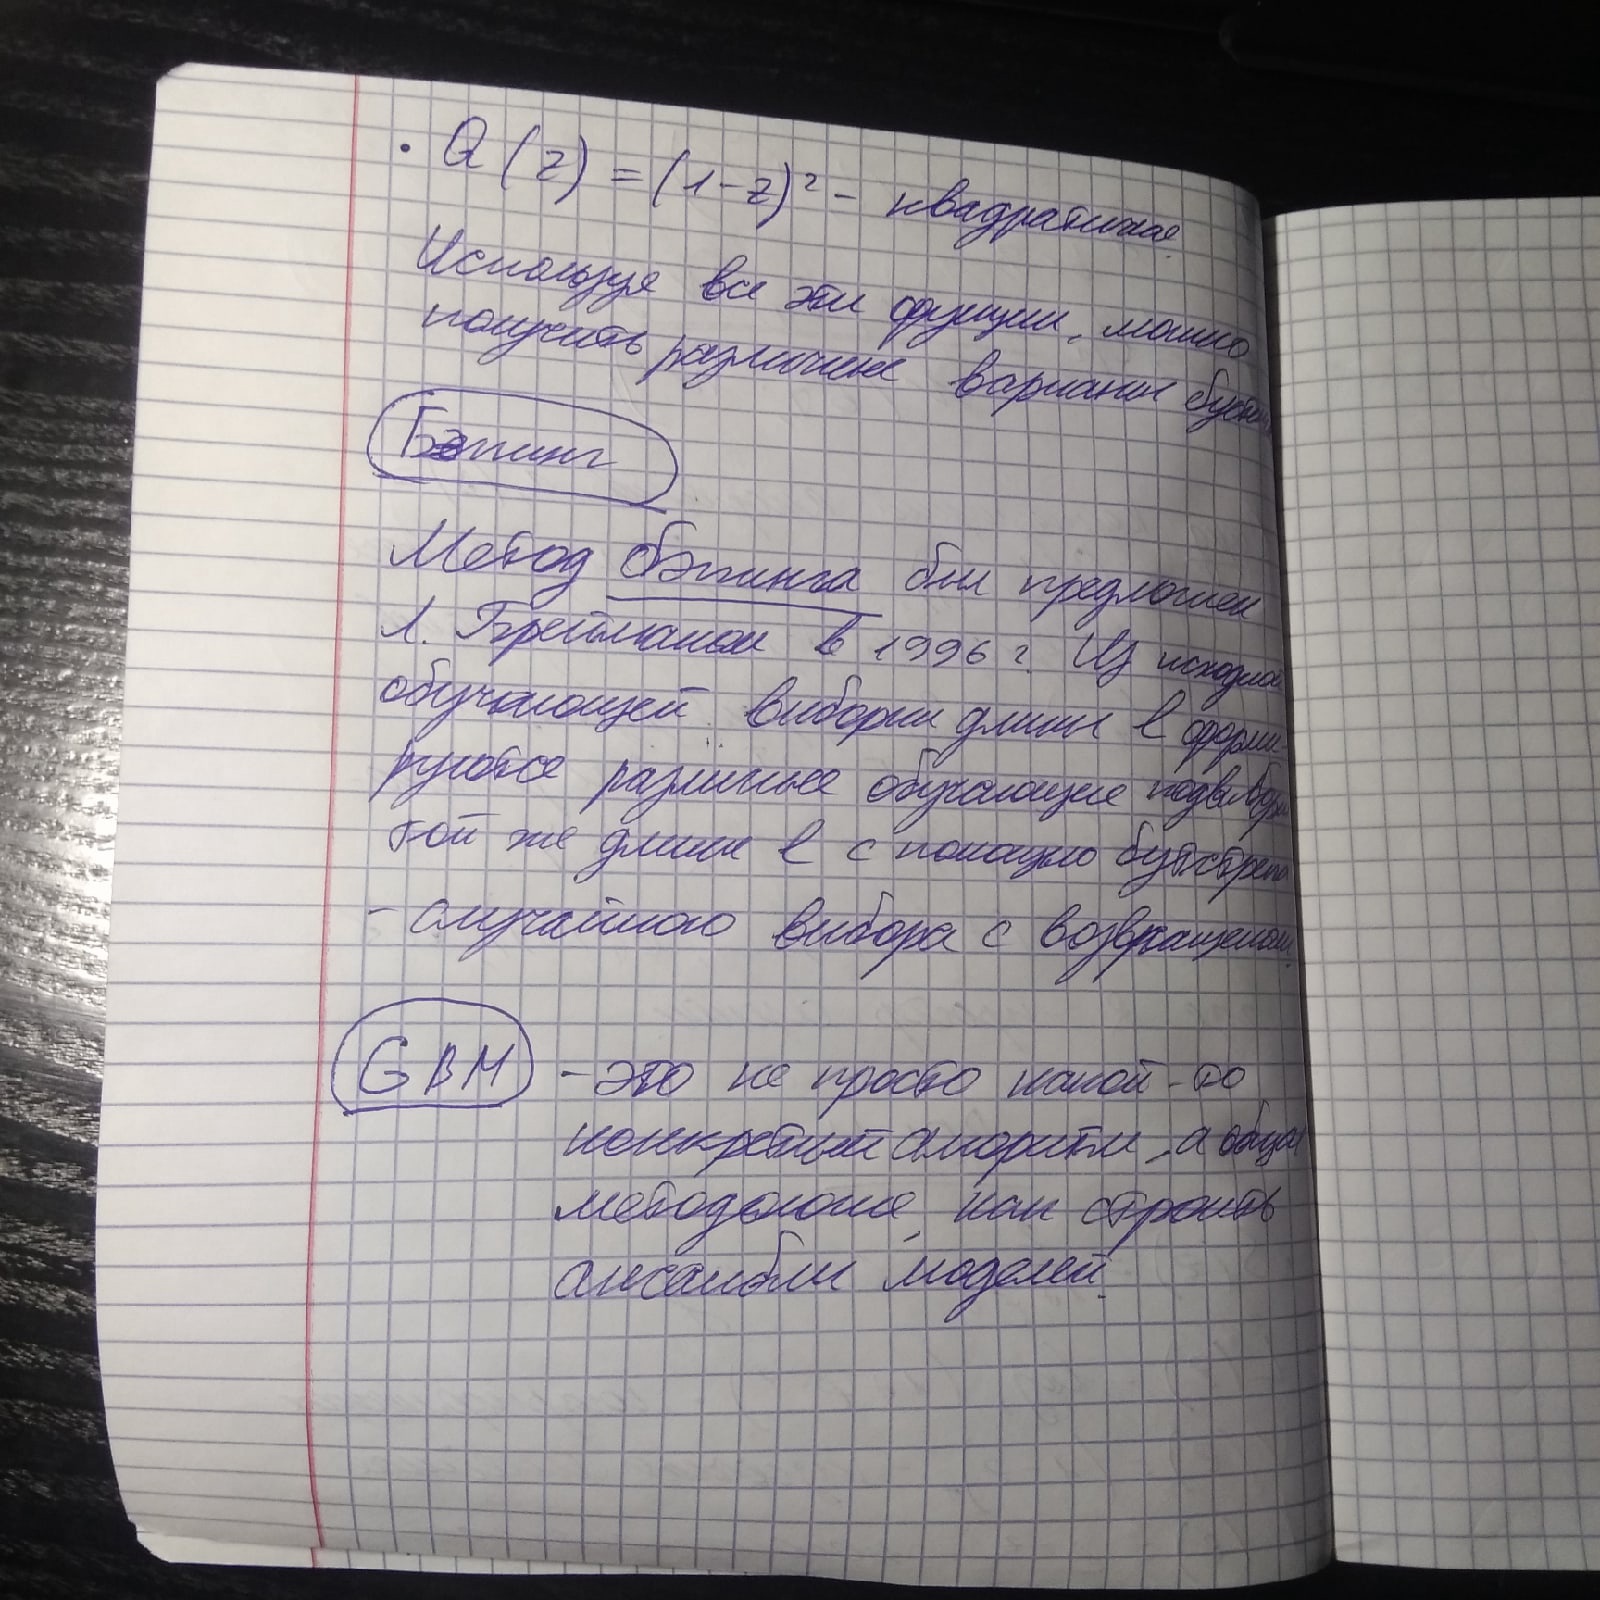 · Q(z) = (1-z)² - квадратичная
Используя все эти функции, можно
получить различные варианты бустинга
Бэггинг
Метод бэггинга был предложен
Л. Брейманом в 1996 г. Из исходной
обучающей выборки длины l форми-
руются различные обучающие подвыборки
той же длины l с помощью бутстрепа
- случайного выбора с возвращением.
GBM - это не просто какой-то
конкретный алгоритм, а общая
методология, как строить
ансамбли моделей.